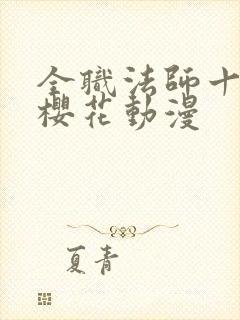 全職法師十
櫻花動漫
夏青